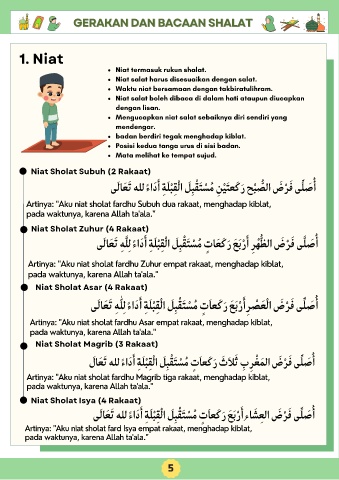 GERAKAN DAN BACAAN SHALAT
1. Niat
Niat termasuk rukun shalat.
Niat salat harus disesuaikan dengan salat.
Waktu niat bersamaan dengan takbiratulihram.
Niat salat boleh dibaca di dalam hati ataupun diucapkan
dengan lisan.
Mengucapkan niat salat sebaiknya diri sendiri yang
mendengar.
badan berdiri tegak menghadap kiblat.
Posisi kedua tanga urus di sisi badan.
Mata melihat ke tempat sujud.
Niat Sholat Subuh (2 Rakaat)
أُصَلِّى فَرْضَ الصُّبْحِ رَكْعَتَيْنِ مُسْتَقْبِلَ الْقِبْلَةِ أَدَاءً لله تَعَالَى
Artinya: "Aku niat sholat fardhu Subuh dua rakaat, menghadap kiblat,
pada waktunya, karena Allah ta'ala."
Niat Sholat Zuhur (4 Rakaat)
أُصَلِّى فَرْضَ الظُّهْرِ أَرْبَعَ رَكَعَاتٍ مُسْتَقْبِلَ الْقِبْلَةِ أَدَاءً لِلَّهِ تَعَالَى
Artinya: "Aku niat sholat fardhu Zuhur empat rakaat, menghadap kiblat,
pada waktunya, karena Allah ta'ala."
Niat Sholat Asar (4 Rakaat)
أُصَلِّى فَرْضَ الْعَصْرِ أَرْبَعَ رَكَعاتٍ مُسْتَقْبِلَ الْقِبْلَةِ أَدَاءً لِلَّهِ تَعَالَى
Artinya: "Aku niat sholat fardhu Asar empat rakaat, menghadap kiblat,
pada waktunya, karena Allah ta'ala."
Niat Sholat Magrib (3 Rakaat)
أُصَلِّى فَرْضَ الْمَغْرِبِ ثَلاَثَ رَكَعاتٍ مُسْتَقْبِلَ الْقِبْلَةِ أَدَاءً لله تَعَالَ
Artinya: "Aku niat sholat fardhu Magrib tiga rakaat, menghadap kiblat,
pada waktunya, karena Allah ta'ala."
Niat Sholat Isya (4 Rakaat)
أُصَلِّى فَرْضَ الْعِشَاءِ أَرْبَعَ رَكَعاتٍ مُسْتَقْبِلَ الْقِبْلَةِ أَدَاءً لله تَعَالَى
Artinya: "Aku niat sholat fard Isya empat rakaat, menghadap kiblat,
pada waktunya, karena Allah ta'ala."
5